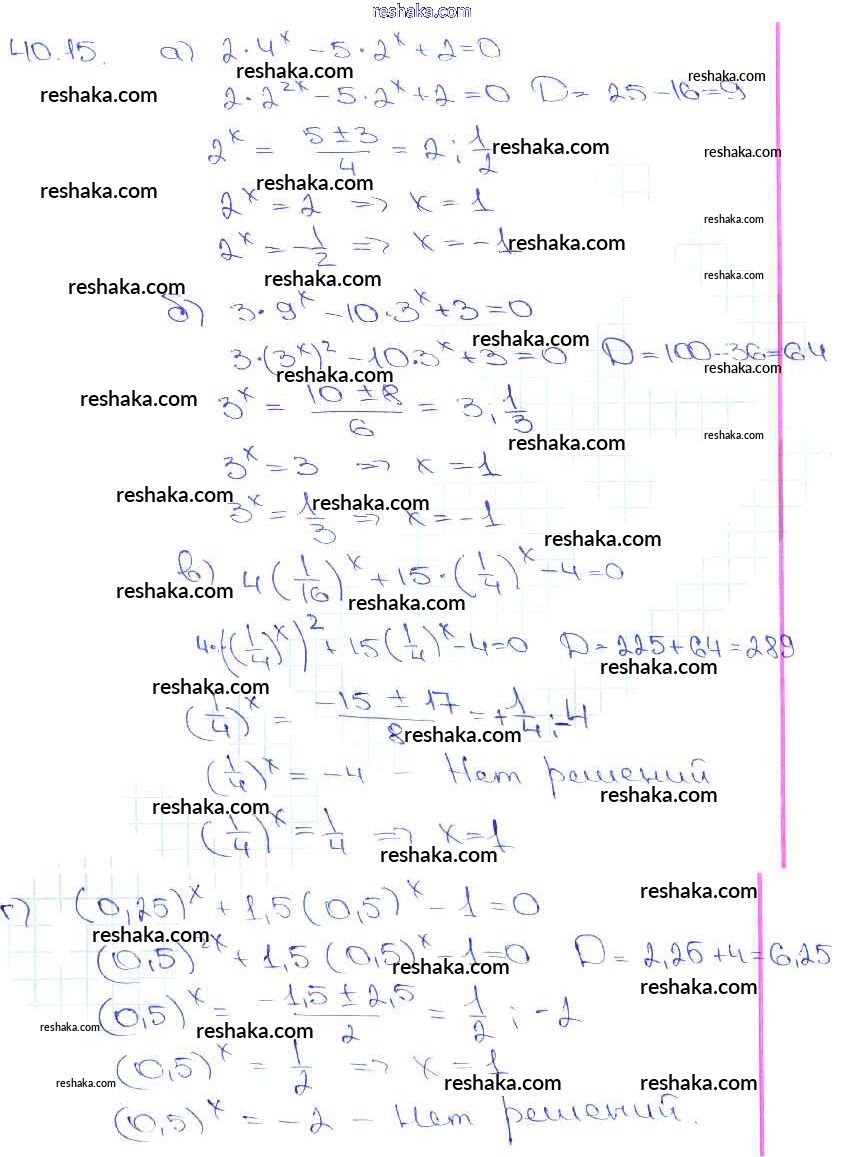 reshaka.com
40.15. а) 2·4^x − 5·2^x + 2 = 0
reshaka.com reshaka.com
reshaka.com 2·2^{2x} − 5·2^x + 2 = 0 D = 25 − 16 = 9
2^x = (5 ± 3)/4 = 2; 1/2 reshaka.com reshaka.com
reshaka.com reshaka.com
2^x = 2 => x = 1 reshaka.com
2^x = 1/2 => x = −1 reshaka.com
reshaka.com reshaka.com reshaka.com
б) 3·9^x − 10·3^x + 3 = 0
reshaka.com
3·(3^x)^2 − 10·3^x + 3 = 0 D = 100 − 36 = 64
reshaka.com reshaka.com
reshaka.com 3^x = (10 ± 8)/6 = 3, 1/3
reshaka.com reshaka.com
3^x = 3 => x = 1
reshaka.com
3^x = 1/3 => x = −1 reshaka.com
reshaka.com
в) 4(1/16)^x + 15·(1/4)^x − 4 = 0
reshaka.com reshaka.com
4·((1/4)^x)^2 + 15(1/4)^x − 4 = 0 D = 225 + 64 = 289
reshaka.com
reshaka.com
(1/4)^x = (−15 ± 17)/8 = +1/4; −4
reshaka.com
(1/4)^x = −4 – Нет решений
reshaka.com
reshaka.com
(1/4)^x = 1/4 => x = 1
reshaka.com
reshaka.com
г) (0,25)^x + 1,5(0,5)^x − 1 = 0
reshaka.com
(0,5)^{2x} + 1,5(0,5)^x − 1 = 0 D = 2,25 + 4 = 6,25
reshaka.com reshaka.com
(0,5)^x = (−1,5 ± 2,5)/2 = 1/2; −2
reshaka.com reshaka.com
(0,5)^x = 1/2 => x = 1
reshaka.com reshaka.com reshaka.com
(0,5)^x = −2 – Нет решений.